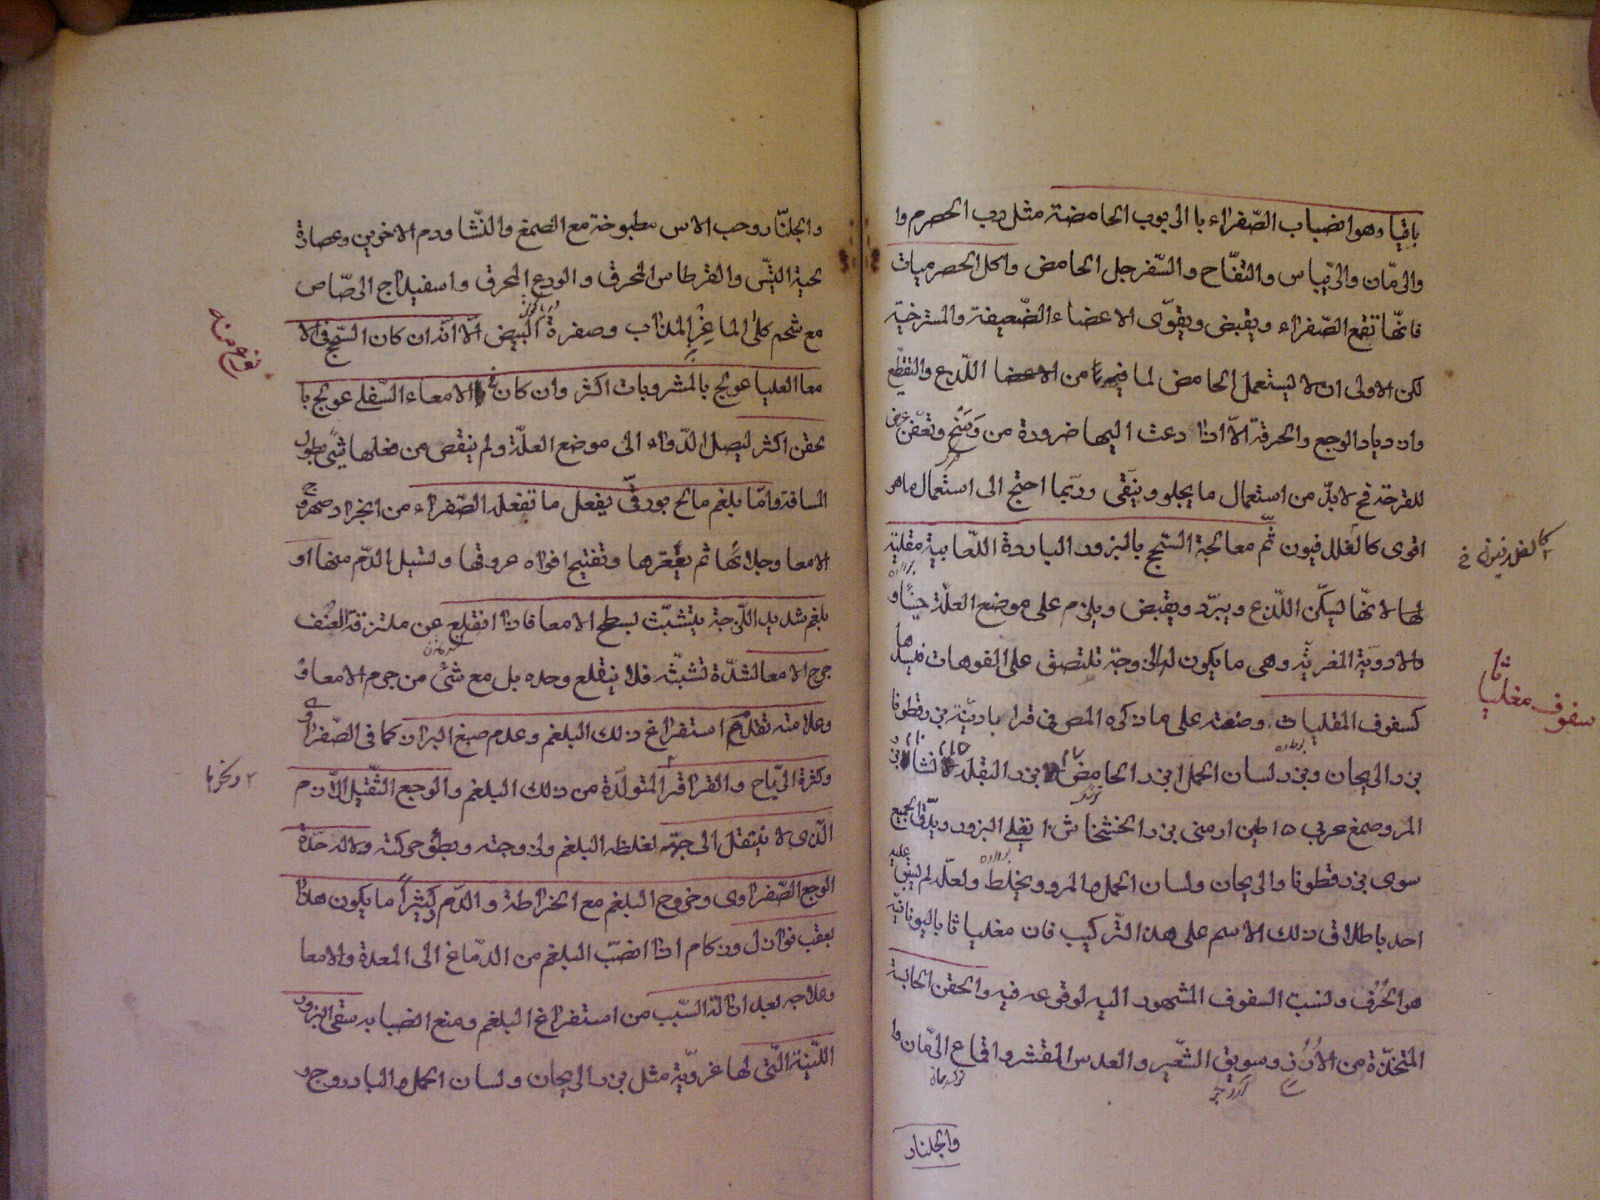 باقيا وهو انضباب الصّفراء بالربوب الحامضة مثل رب الحصرم وا
والرّمان والريباس والتفّاح والسّفرجل الحامض واكل الحصرميات
فانّها تقمع الصّفراء ويقبض ويقوّى الاعضاء الضّعيفة والمسترخية
لكن الاولى ان لا يستعمل الحامض لما فيه من الاعضا اللّذع والتقطّع
وازدياد الوجع والحرقة الّا اذا دعت اليها ضرورة من وضح وتعفّن
للقرحة فح لا بدّ من استعمال ما يجلو وينقى وربّما احتج الى استعمال ماهو
اقوى كالفلدفيون ثمّ معالجة السّحج بالبزور الباردة اللّعابية مقلية
لها لانّها ليسكّن اللّذع ويبرّد ويقبض ويلزم على موضع العلّة
والادوية المغرية وهى ما يكون له لزوجة تلتصق على الفوهات فيسدها
كسفوف المقلياثا وصفته على ما ذكره المص فى قرابادينه بزرقطونا
بزر الريحان وبزر لسان الحمل بزر الحامض بزر البقلة نشا
المرو صمغ عربى ٥ طين ارمنى بزر الخشخاش ١ يقلى البزور ويدّق الجميع
سوى بزرقطونا والريحان ولسان الحمل والمرو ويخلط ولعلّه لم يبق
احد باطلاق ذلك الاسم على هذا التّركيب فان مغلياثا باليونانية
هو الحُرف ونسب السفوف المشهور اليه لوقوعه فيه والحقن الحابسة
المتخذة من الارز وسويق الشّعير والعدس المقشر واقماع الرّمان وا
والجلنار
كالفلدفيون خ
سفوف مغلياثا
والجلنّار وحب الاس مطبوخة مع الصمغ والنّشا ودم الاخوين وعصارة
لحية التيّس والقرطاس المحرق والودع المحرق واسفيداج الرصّاص
مع شحم كلى الماعز المذاب وصفرة البيض الّا انّه ان كان السّحج فى الا
معا العليا عولج بالمشروبات اكثر وان كان فى الامعاء السّفلى عولج با
لحقن اكثر ليصل الدّواء الى موضع العلّة ولم ينقص من فعلها شئ بطول
المسافة وامّا بلغم مالح بورقىّ يفعل ما تفعله الصّفراء من انجراد صهروج
الامعا وجلائها ثم يقعّرها وتفتيح افواه عروقها وليسيل الدّم منها او
بلغم شديد اللّزوجة يتشبّث بسطح الامعا فاذا انقلع عن ملتزقه العنف
جرح الامعا لشدّة تشبثّه فلا ينقلع وحده بل مع شئ من جرم الامعا
وعلامته تقدّم استفراغ ذلك البلغم وعدم صبغ البراز كما فى الصّفراوى
وكثرة الريّاح والقراقر المتولّدة من ذلك البلغم والوجع الثّقيل اللّازم
الّذى لا ينتقل الى جهة لغلظه البلغم ولزوجته وبطؤ حركته ولا له حدّة
الوجع الصّفراوى وخروج البلغم مع الخراطة والدّم وكثيراً ما يكون هذا
بعقب نوازل وزكام اذا انصّب البلغم من الدّماغ الى المعدة والامعا
وعلاجه بعد ازالة السّبب من استفراغ البلغم ومنع انضبابه سقى البزور
اللّينة التّى لها غروّية مثل بزر الريحان ولسان الحمل والبادروج و